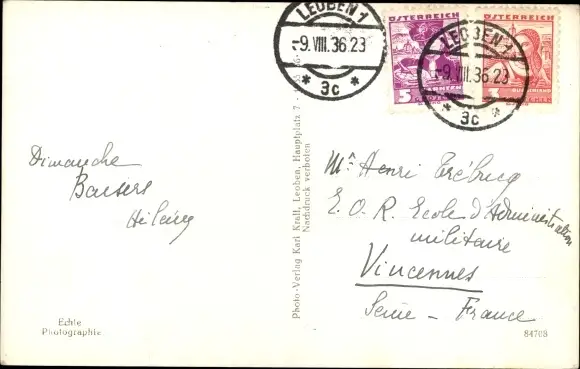 LEOBEN 1
-9. VIII. 36. 23
* 3c *
ÖSTERREICH
5
ÖSTERREICH
LEOBEN 1
-9. VIII. 36. 23
* 3c *
Dimanche
Baisers
Photo-Verlag Karl Krall, Leoben, Hauptplatz 7
Nachdruck verboten
Mr Henri
E. O. R. Ecole d'Administration
militaire
Vincennes
Seine - France
Echte
Photographie
84708